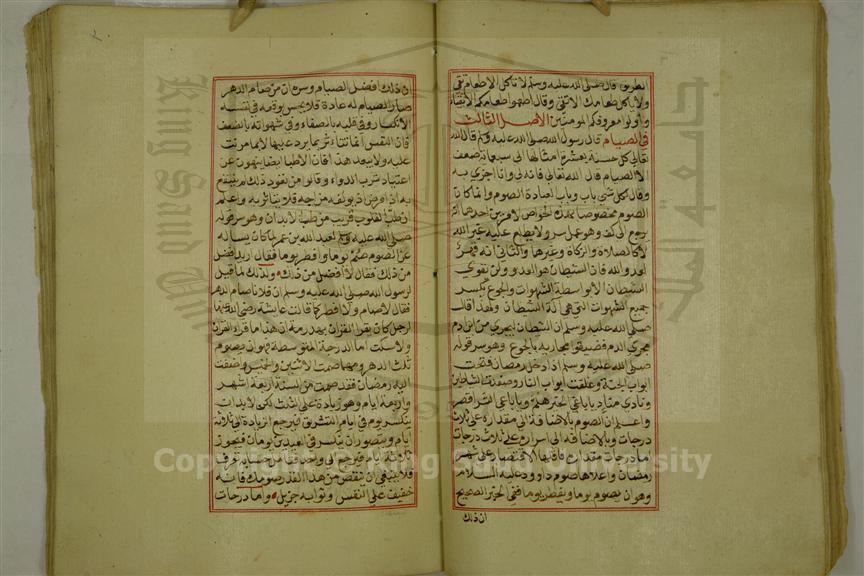 الطريق قال صلى الله عليه وسلم لا تأكل الا طعام تقي
ولا ياكل طعامك الا تقي وقال اطعموا طعامكم الاتقياء
واولوا معروفكم المومنين الاصل الثالث
في الصيام قال رسول الله صلى الله عليه وسلم قال الله
تعالى كل حسنة بعشرة امثالها الى سبعمائة ضعف
الا الصيام قال الله تعالى فانه لي وانا اجزي به
وقال لكل شي باب وباب العبادة الصوم وانما كان
الصوم مخصوصا بهذه الخواص لامرين احدهما انه
يرجع الى كف وهو عمل سر ولا يطلع عليه غير الله
لا كالصلاة والزكاة وغيرها والثاني انه قهر
لعدو الله فان الشيطان هو العدو ولن يقوى
الشيطان الا بواسطة الشهوات والجوع يكسر
جميع الشهوات التي هي آلة الشيطان ولهذا قال
صلى الله عليه وسلم ان الشيطان يجري من ابن ادم
مجري الدم فضيقوا مجاريه بالجوع وهو سر قوله
صلى الله عليه وسلم اذا دخل رمضان فتحت
ابواب الجنة وغلقت ابواب النار وصفدت الشياطين
ونادي مناد يا باغي الخير هلم ويا باغي الشر اقصر
واعلم ان الصوم بالاضافة الى مقداره على ثلاث
درجات وبالاضافة الى اسراره على ثلاث درجات
اما درجات مقداره فاقلها الاقتصار على شهر
رمضان واعلاها صوم داوود عليه السلام
وهو ان يصوم يوما ويفطر يوما ففي الخبر الصحيح
ان ذلك
ان ذلك افضل الصيام وسره ان من صام الدهر
صار الصيام له عادة فلا يحس بوقعه في نفسه
الانكسار وفي قلبه بالصفاء وفي شهواته بالضعف
فان النفس انما تتاثر بما يرد عليها لا بما مرنت
عليه ولا يبعد هذا فان الاطبا ايضا ينهون عن
اعتياد شرب الدواء وقالوا من تعود ذلك لم ينتفع
به اذا مرض اذ يولفه مزاجه فلا يتاثر به واعلم
ان طب القلوب قريب من طب الابدان وهو سر قوله
صلى الله عليه وسلم لعبد الله بن عمر لما كان يساله
عن الصوم صم يوما وافطر يوما فقال اريد افضل
من ذلك فقال لا افضل من ذلك ولذلك لما قيل
لرسول الله صلى الله عليه وسلم ان فلانا صام الدهر
فقال لا صام ولا افطر كما قالت عايشة رضي الله عنها
لرجل كان يقرا القران بهذرمة ان هذا ما قراء القران
ولا سكت اما الدرجة المتوسطة فهو ان يصوم
ثلث الدهر ومهما صمت الاثنين والخميس واضفت
اليه رمضان فقد صمت من السنة اربعة اشهر
واربعة ايام وهو زيادة على الثلث لكن لابد ان
ينكسر يوم في ايام التشريق فيرجع الزيادة الى ثلاثة
ايام ويتصور ان ينكسر في العيدين يومان فيجوز
فلا ينبغي ان ينقص من هذا القدر صومك فانه
خفيف على النفس وثوابه جزيل واما درجات
King Saud University
جامعة الملك
1957
Copyright © King Saud University